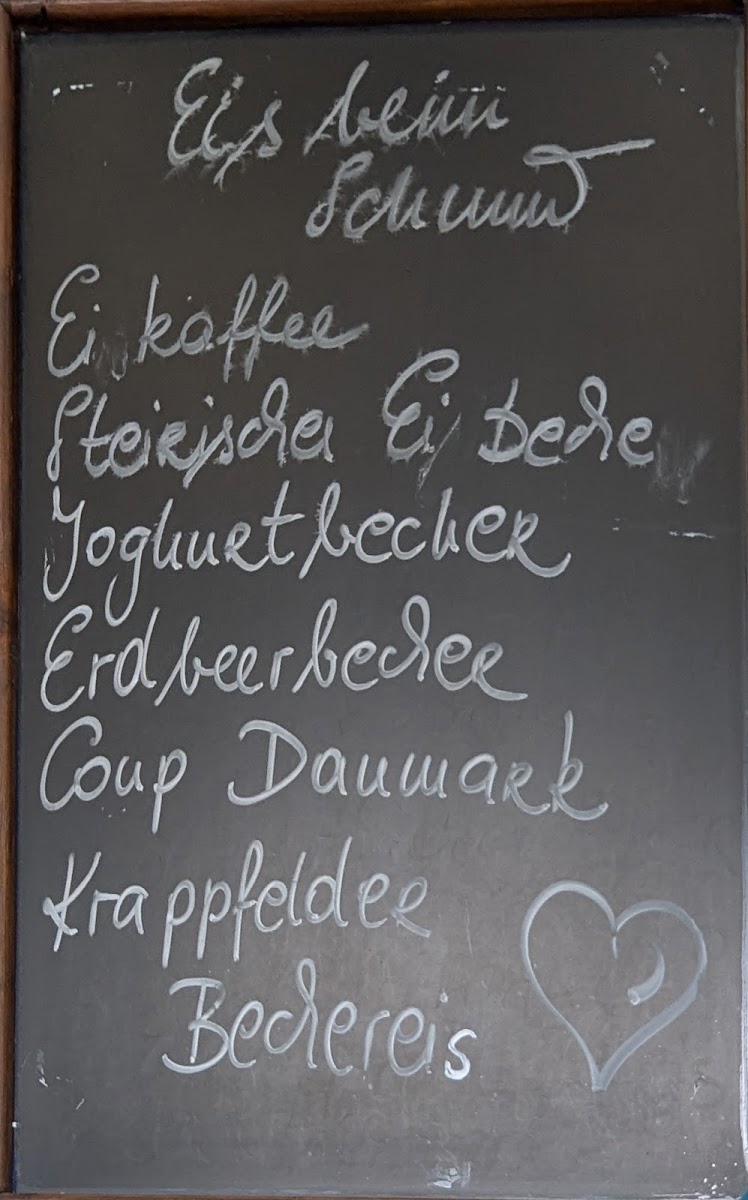 Eis beim
Schmid
Ei kaffee
Steirischer Ei Beche
Joghurtbecher
Erdbeerbecher
Coup Danmark
Krappfelder
Bechereis